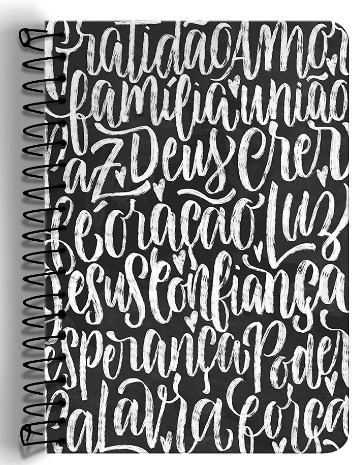 Gratidão Amor
família união
Paz Deus Crer
Coração Luz
Jesus Confiança
Esperança Poder
Palavra Força